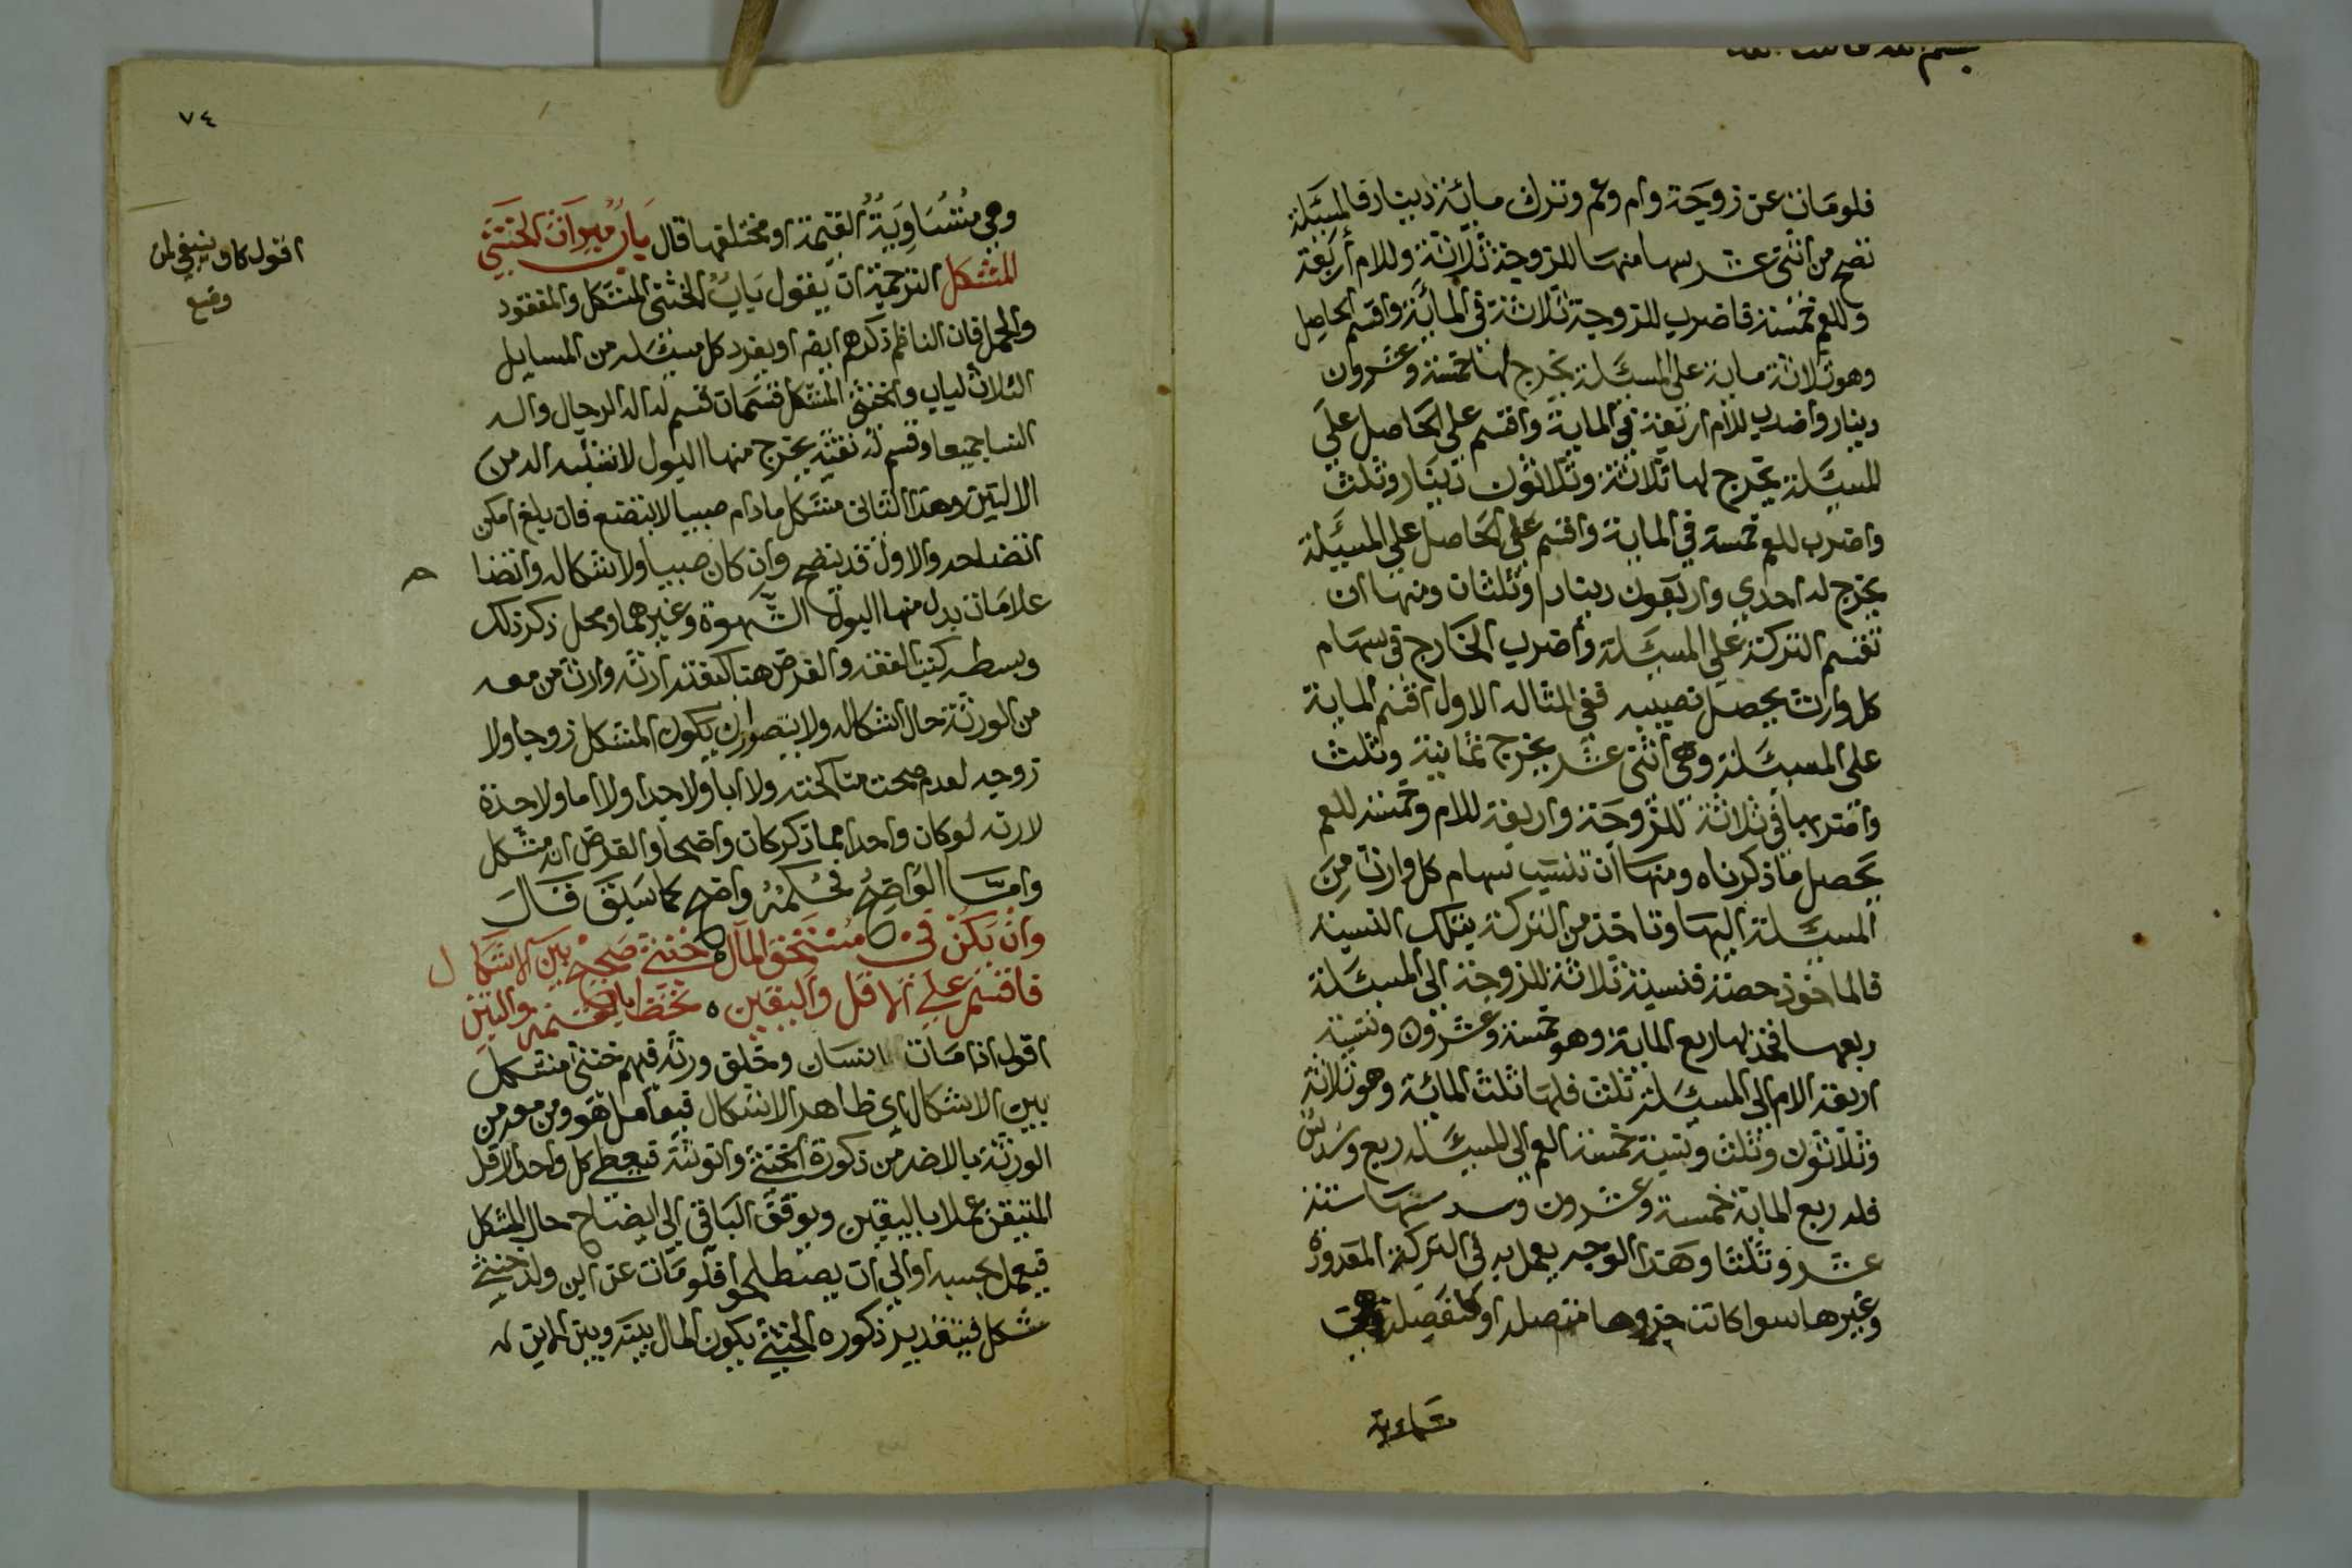 فلو مات عن زوجة وام وعم وترك مائة دينار فالمسئلة
تصح من اثنى عشر سهما منها للزوجة ثلاثة وللام أربعة
وللعم خمسة فاضرب للزوجة ثلاثة في المائة واقسم الحاصل
وهو ثلاثة مايه على المسئلة يخرج لها خمسة وعشرون
دينار واضرب للام اربعة في المايه واقسم على الحاصل على
المسئلة يخرج لها ثلاثة وثلاثون دينار وثلث
واضرب للعم خمسة في المايه واقسم على الحاصل على المسئلة
يخرج له احدي واربعون دينارا وثلثان ومنها ان
تقسم التركة على المسئلة واضرب الخارج في سهام
كل وارث يحصل نصيبه ففي المثاله الاول اقسم الماية
على المسئلة وهي اثنى عشر يخرج ثمانية وثلث
واضربها في ثلاثة للزوجة واربعة للام وخمسة للعم
يحصل ما ذكرناه ومنها أن تنسب سهام كل وارث من
المسئلة اليها وتاخذ من التركة بتلك النسبة
فالماخوذ حصته فنسبة ثلاثة للزوجة الى المسئلة
ربعها فخذ لها ربع المايه وهو خمسة وعشرون ونسبة
اربعة الام الى المسئلة ثلث فلها ثلث المائة وهو ثلاثة
وثلاثون وثلث ونسبة خمسة العم الى المسئله ربع وسدس
فله ربع الماية خمسة وعشرون وسدسها ستة
عشر وثلثا وهذا الوجه يعمل به في التركة المعدودة
وغيرها سوا كانت جزوها متصله او منفصله
متساوية
٧٤
وهي متساوية القيمة او مختلفها قال باب ميراث الخنثي
المشكل الترجمة ان يقول باب الخنثى المشكل والمفقود
والحمل فان الناظم ذكرهم ايضا او يفرد كل مسئله من المسايل
الثلاث لباب والخنثى المشكل قسمان قسم له اله الرجال واله
النسا جميعا وقسم له ثقبه يخرج منها البول لا تشبه اله من
الالتين وهذا الثاني مشكل ما دام صبيا لا يتضح فان بلغ امكن
اتضاحه والاول قد يتضح وان كان صبيا ولاشكاله واتضا ح
علامات يدل منها البول الشهوة وغيرهما ومحل ذكر ذلك
وبسطه كتب الفقه والغرض هنا كيفية ارثه وارث من معه
من الورثة حال اشكاله ولا يتصور ان يكون المشكل زوجا ولا
زوجه لعدم صحت مناكحته ولا ابا ولا جدا ولا اما ولا جدة
لانه لو كان واحدا مما ذكر كان واضحا والفرض انه مشكل
واما الواضح فحكمه واضح كما سبق قال
وان يكن في مستحق المال ۝ خنثى صحيح بين الاشكال
فاقسم على الاقل واليقين ۝ تحظ بالقسمه والتبيين
اقول اذا مات انسان وخلف ورثه فيهم خنثى مشكل
بين الاشكال اى ظاهر الاشكال فيعامل هو ومن معه من
الورثة بالاضر من ذكورة الخنثي وانوثته فيعطى كل واحد الاقل
المتيقن عملا باليقين ويوقف الباقي الى ايضاح حال المشكل
فيعمل بحسبه اوالى ان يصطلحوا فلو مات عن ابن وولد خنثي
مشكل فبتقدير ذكوره الخنثي يكون المال بينه وبين الابن
اقول كان ينبغي لمن
وضع